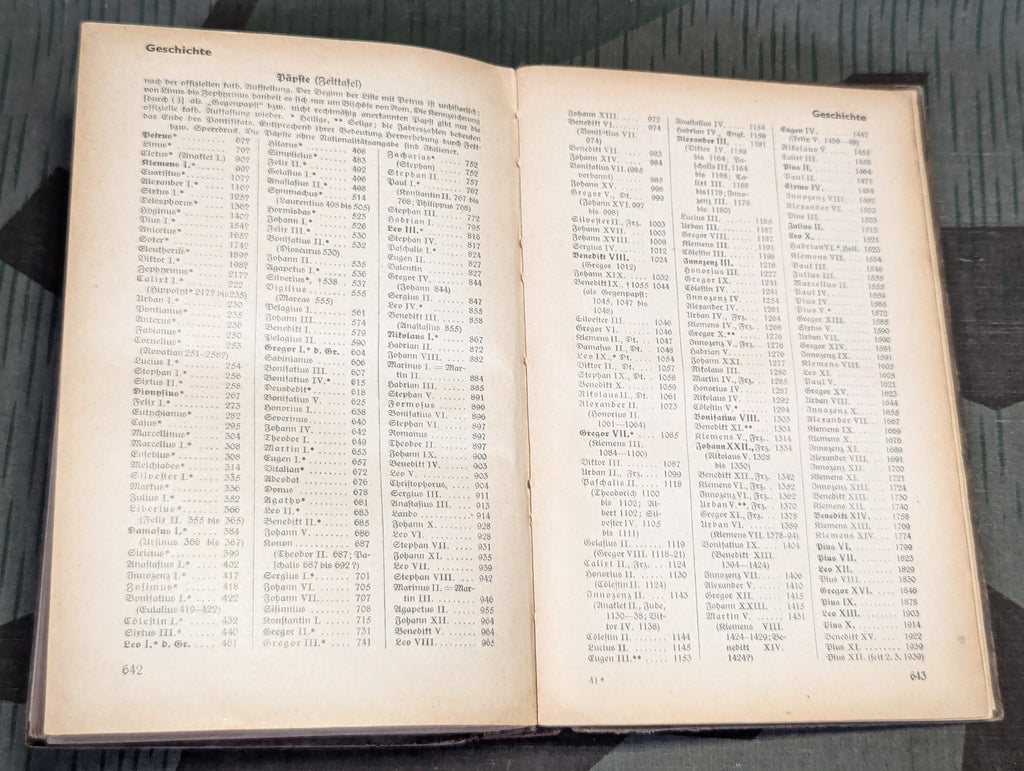 Geschichte
Päpste (Zeittafel)
nach der offiziellen kath. Aufstellung. Der Beginn der Liste mit Petrus ist unhistorisch;
von Linus bis Zephyrinus handelt es sich nur um Bischöfe von Rom. Die Kennzeichnung
[durch ( )] als „Gegenpapst" bzw. nicht rechtmäßig anerkannten Papst gibt nur die
offizielle kath. Auffassung wieder. * Heilige, ** Selige; die Jahreszahlen bedeuten
das Ende des Pontifikats. Entsprechend ihrer Bedeutung Hervorhebung durch Fett-
bzw. Sperrdruck. Die Päpste ohne Nationalitätsangabe sind Italiener.
Petrus* 67?
Linus* 79?
Cletus* (Anaklet I.) 90?
Klemens I.* 99?
Evaristus* 107?
Alexander I.* 116?
Sixtus I.* 125?
Telesphorus* 136?
Hyginus* 140?
Pius I.* 154?
Anicetus* 165?
Soter* 174?
Eleutherus* 189?
Viktor I.* 198?
Zephyrinus* 217?
Calixt I.* 222
(Hippolyt* 217? bis 235)
Urban I.* 230
Pontianus* 235
Anterus* 236
Fabianus* 250
Cornelius* 253
(Novatian 251–258?)
Lucius I.* 254
Stephan I.* 256
Sixtus II.* 258
Dionysius* 267
Felix I.* 273
Eutychianus* 282
Cajus* 295
Marcellinus* 304
Marcellus I.* 308
Eusebius* 308
Melchiades* 314
Silvester I.* 335
Markus* 336
Julius I.* 352
Liberius* 366
(Felix II. 355 bis 365)
Damasus I.* 384
(Ursinus 366 bis 367)
Siricius* 399
Anastasius I.* 402
Innozenz I.* 417
Zosimus* 418
Bonifatius I.* 422
(Eulalius 419–422)
Cölestin I.* 432
Sixtus III.* 440
Leo I.* d. Gr. 461
Hilarus* 468
Simplicius* 483
Felix II.* 492
Gelasius I.* 496
Anastasius II.* 498
Symmachus* 514
(Laurentius 498 bis 505)
Hormisdas* 523
Johann I.* 526
Felix III.* 530
Bonifatius II.* 532
(Dioscurus 530)
Johann II. 535
Agapetus I.* 536
Silverius*, †538 537
Vigilius 555
(Marcas 555)
Pelagius I. 561
Johann III. 574
Benedikt I. 579
Pelagius II. 590
Gregor I.* d. Gr. 604
Sabinianus 606
Bonifatius III. 607
Bonifatius IV.* 615
Deusdedit* 618
Bonifatius V. 625
Honorius I. 638
Severinus 640
Johann IV. 642
Theodor I. 649
Martin I.* 653
Eugen I.* 657
Vitalian* 672
Adeodat 676
Donus 678
Agatho* 681
Leo II.* 683
Benedikt II.* 685
Johann V. 686
Konon 687
(Theodor II. 687; Pa-
schalis 687 bis 692?)
Sergius I.* 701
Johann VI. 705
Johann VII. 707
Sisinnius 708
Konstantin I. 715
Gregor II.* 731
Gregor III.* 741
Zacharias* 752
(Stephan) 752
Stephan II. 757
Paul I.* 767
(Konstantin II. 767 bis
768; Philippus 768)
Stephan III. 772
Hadrian I. 795
Leo III.* 816
Stephan IV. 817
Paschalis I.* 824
Eugen II. 827
Valentin 827
Gregor IV. 844
(Johann 844)
Sergius II. 847
Leo IV.* 855
Benedikt III. 858
(Anastasius 855)
Nikolaus I.* 867
Hadrian II. 872
Johann VIII. 882
Marinus I. = Mar-
tin II. 884
Hadrian III. 885
Stephan V. 891
Formosus 896
Bonifatius VI. 896
Stephan VI. 897
Romanus 897
Theodor II. 897
Johann IX. 900
Benedikt IV. 903
Leo V. 903
Christophorus, 904
Sergius III. 911
Anastasius III. 913
Lando 914
Johann X. 928
Leo VI. 928
Stephan VII. 931
Johann XI. 935
Leo VII. 939
Stephan VIII. 942
Marinus II. = Mar-
tin III. 946
Agapetus II. 955
Johann XII. 964
Benedikt V. 964
Leo VIII. 965
642
Geschichte
Johann XIII. 972
Benedikt VI. 974
(Bonifatius VII.
974)
Benedikt VII. 983
Johann XIV. 984
Bonifatius VII. (985
verbannt)
Johann XV. 996
Gregor V., Dt. 999
(Johann XVI. 997
bis 998)
Silvester II., Frz. 1003
Johann XVII. 1003
Johann XVIII. 1009
Sergius IV. 1012
Benedikt VIII. 1024
(Gregor 1012)
Johann XIX. 1032
Benedikt IX., †1055 1044
(als Gegenpapst:
1045, 1047 bis
1048)
Silvester III. 1046
Gregor VI. 1046
Klemens II., Dt. 1047
Damasus II., Dt. 1048
Leo IX.,* Dt. 1054
Viktor II., Dt. 1057
Stephan IX., Dt. 1058
Benedikt X. 1059
Nikolaus II., Dt. 1061
Alexander II. 1073
(Honorius II.
1061–1064)
Gregor VII.* 1085
(Klemens III.
1084–1100)
Viktor III. 1087
Urban II., Frz. 1099
Paschalis II. 1118
(Theoderich 1100
bis 1102; Al-
bert 1102; Sil-
vester IV. 1105
bis 1111)
Gelasius II. 1119
(Gregor VIII. 1118–21)
Calixt II., Frz. 1124
Honorius II. 1130
(Cölestin II. 1124)
Innozenz II. 1143
(Anaklet II., Jude,
1130–38; Vik-
tor IV. 1138)
Cölestin II. 1144
Lucius II. 1145
Eugen III.** 1153
41*
Anastasius IV. 1154
Hadrian IV., Engl. 1159
Alexander III. 1181
(Viktor IV. 1159
bis 1164; Pa-
schalis III. 1164
bis 1168; Ca-
lixt III. 1168
bis 1178; Inno-
zenz III. 1179
bis 1180)
Lucius III. 1185
Urban III. 1187
Gregor VIII. 1187
Klemens III. 1191
Cölestin III. 1198
Innozenz III. 1216
Honorius III. 1227
Gregor IX. 1241
Cölestin IV. 1241
Innozenz IV. 1254
Alexander IV. 1261
Urban IV., Frz. 1264
Klemens IV., Frz. 1268
Gregor X.** 1276
Innozenz V., Frz. 1276
Hadrian V. 1276
Johann XXI. 1277
Nikolaus III. 1280
Martin IV., Frz. 1285
Honorius IV. 1287
Nikolaus IV. 1292
Cölestin V.* 1294
Bonifatius VIII. 1303
Benedikt XI.** 1304
Klemens V., Frz. 1314
Johann XXII., Frz. 1334
(Nikolaus V. 1328
bis 1330)
Benedikt XII., Frz. 1342
Klemens VI., Frz. 1352
Innozenz VI., Frz. 1362
Urban V.**, Frz. 1370
Gregor XI., Frz. 1378
Urban VI. 1389
(Klemens VII. 1378–94)
Bonifatius IX. 1404
(Benedikt XIII.
1394–1424)
Innozenz VII. 1406
Alexander V. 1410
Gregor XII. 1415
Johann XXIII. 1415
Martin V. 1431
(Klemens VIII.
1424–1429; Be-
nedikt XIV.
1424?)
Eugen IV. 1447
(Felix V. 1439–49)
Nikolaus V. 1455
Calixt III. 1458
Pius II. 1464
Paul II. 1471
Sixtus IV. 1484
Innozenz VIII. 1492
Alexander VI. 1503
Pius III. 1503
Julius II. 1513
Leo X. 1521
Hadrian VI., Holl. 1523
Klemens VII. 1534
Paul III. 1549
Julius III. 1555
Marcellus II. 1555
Paul IV. 1559
Pius IV. 1565
Pius V.* 1572
Gregor XIII. 1585
Sixtus V. 1590
Urban VII. 1590
Gregor XIV. 1591
Innozenz IX. 1591
Klemens VIII. 1605
Leo XI. 1605
Paul V. 1621
Gregor XV. 1623
Urban VIII. 1644
Innozenz X. 1655
Alexander VII. 1667
Klemens IX. 1669
Klemens X. 1676
Innozenz XI. 1689
Alexander VIII. 1691
Innozenz XII. 1700
Klemens XI. 1721
Innozenz XIII. 1724
Benedikt XIII. 1730
Klemens XII. 1740
Benedikt XIV. 1758
Klemens XIII. 1769
Klemens XIV. 1774
Pius VI. 1799
Pius VII. 1823
Leo XII. 1829
Pius VIII. 1830
Gregor XVI. 1846
Pius IX. 1878
Leo XIII. 1903
Pius X. 1914
Benedikt XV. 1922
Pius XI. 1939
Pius XII. (seit 2. 3. 1939)
643